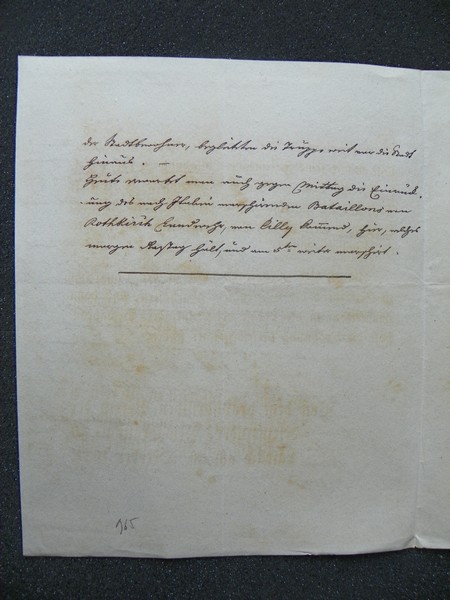 der Stadtbewohner, begleiteten die Truppe weit vor die Stadt
hinaus. —
Heute erwartet man auch gegen Mittag die Einrück-
ung des nach Italien marschirenden Bataillons von
Rothkirch Landwehr, von Cilly kommend, hier, welches
morgen Rasttag hält, und am 5ten weiter marschirt.
965